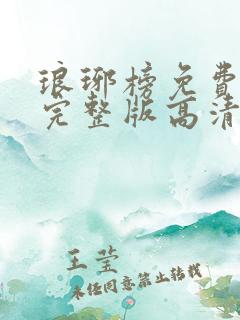 琅琊榜免费
完整版高清
王莹
未经同意禁止转载